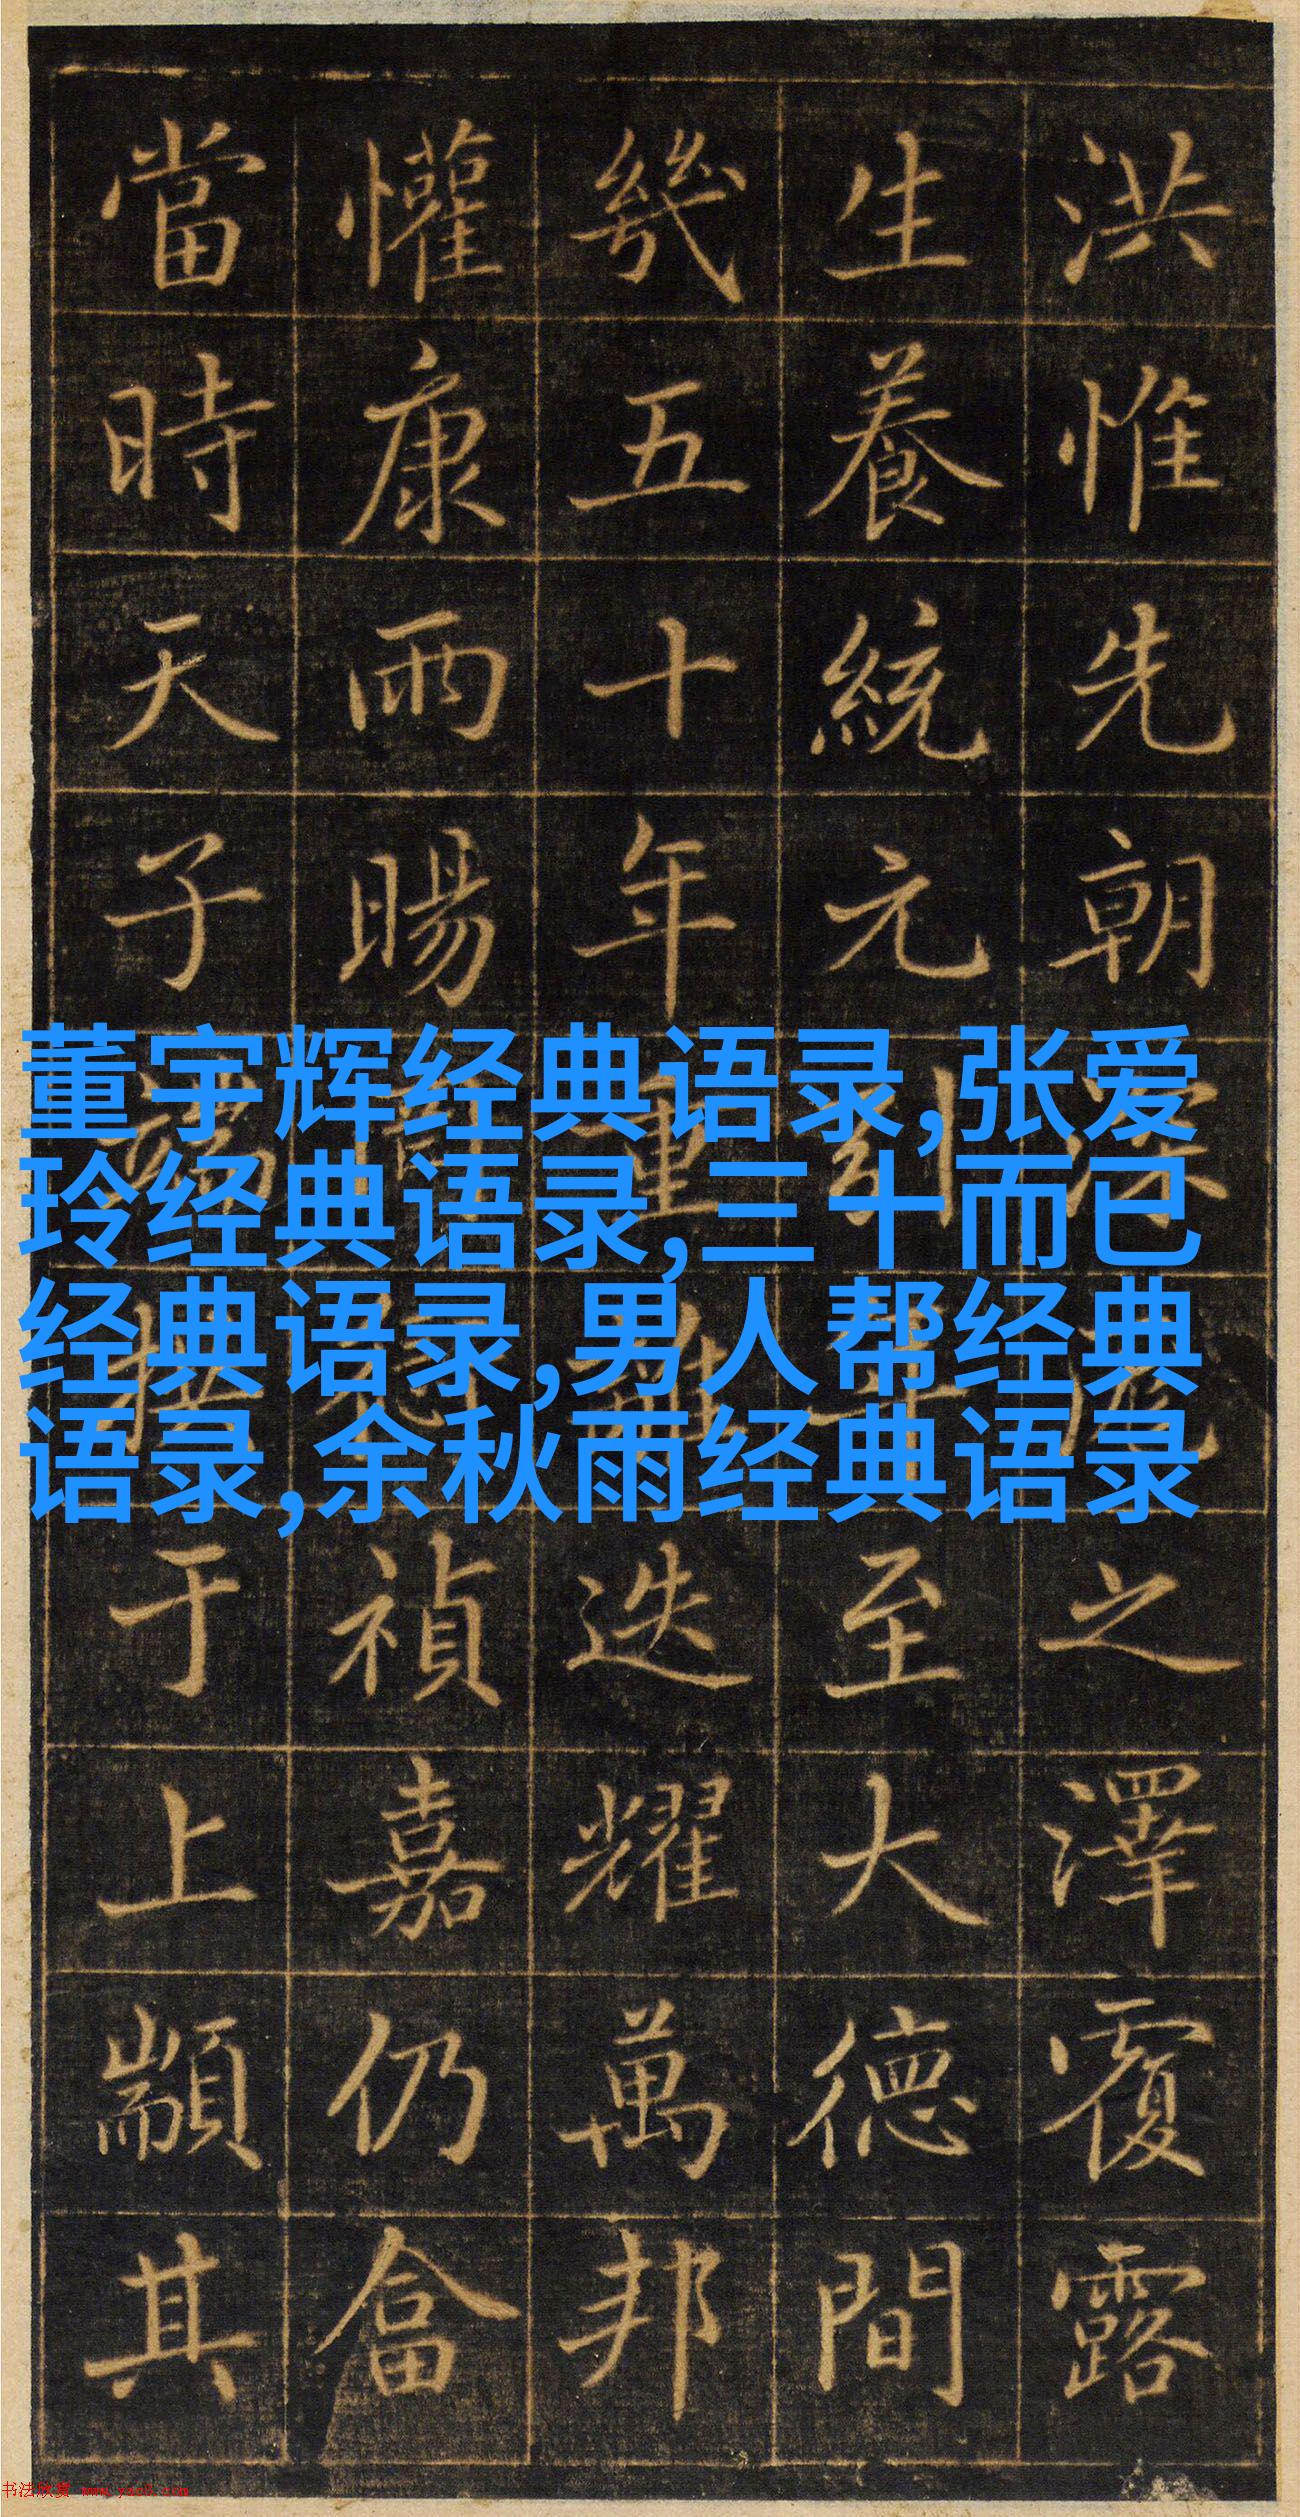 洪惟先朝深
之澤覆露
生養統元
至大德間
幾五十年重
迭耀萬邦
懽康雨暘
禎嘉仍畣
當時天子端拱于上顒其
董宇辉经典语录,张爱
玲经典语录,三十而已
经典语录,男人帮经典
语录,余秋雨经典语录
书法欣赏 www.yac8.com